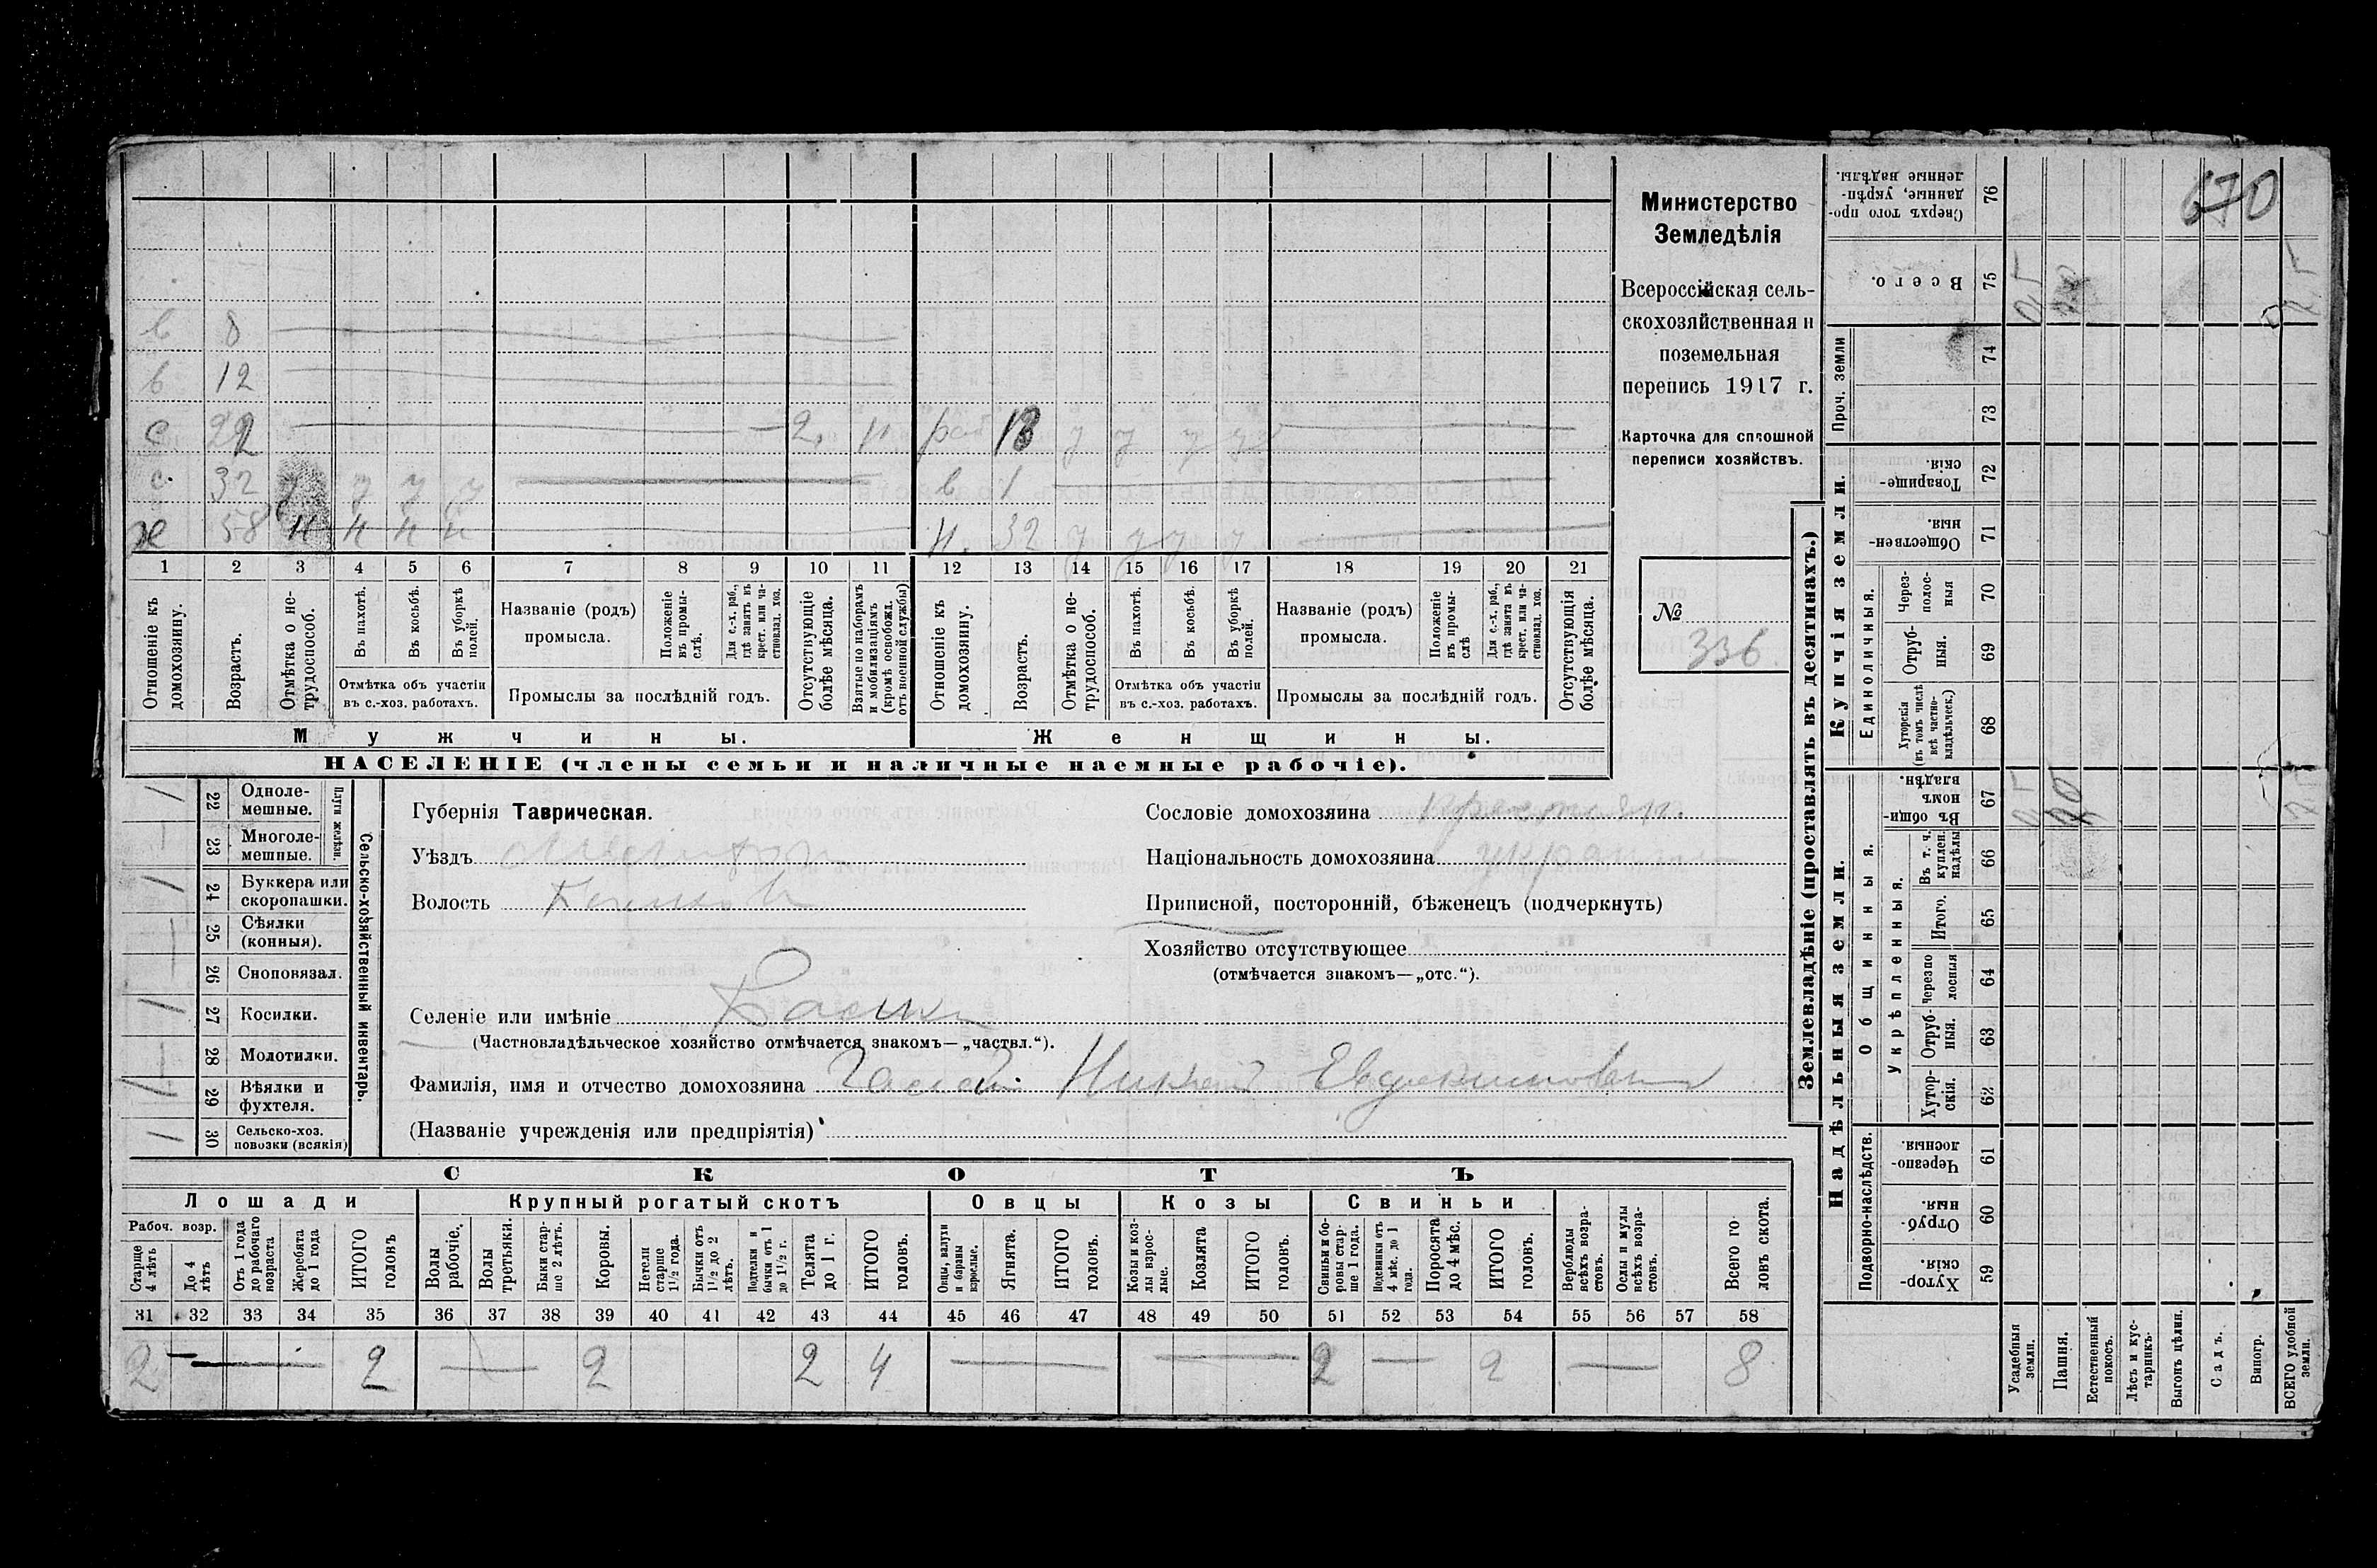 670
Министерство
Земледѣлія
Всероссійская сель-
скохозяйственная и
поземельная
перепись 1917 г.
Карточка для сплошной
переписи хозяйствъ.
№ 336.
в 8
в 12
с 22 2, н раб 18 у у у у
с. 32 у у у у в 1
х 58 н н н н н. 32 у у у у
1 2 3 4 5 6 7 8 9 10 11 12 13 14 15 16 17 18 19 20 21
Отношеніе къ домохозяину.
Возрастъ.
Отмѣтка о не-трудоспособ.
Въ пахотѣ.
Въ косьбѣ.
Въ уборкѣ полей.
Отмѣтка объ участіи
въ с.-хоз. работахъ.
Названіе (родъ)
промысла.
Положеніе въ промы-слѣ.
Для с.-х. раб., гдѣ занятъ въ крест. или ча-стновлад. хоз.
Промыслы за послѣдній годъ.
Отсутствующіе болѣе мѣсяца.
Взятые по наборамъ и мобилизаціямъ (кромѣ освобожд. отъ военной службы)
Отношеніе къ домохозяину.
Возрастъ.
Отмѣтка о не-трудоспособ.
Въ пахотѣ.
Въ косьбѣ.
Въ уборкѣ полей.
Отмѣтка объ участіи
въ с.-хоз. работахъ.
Названіе (родъ)
промысла.
Положеніе въ промы-слѣ
Для с.-х. раб., гдѣ занята въ крест. или ча-стновлад. хоз.
Промыслы за послѣдній годъ.
Отсутствующія болѣе мѣсяца.
Мужчины.
Женщины.
НАСЕЛЕНІЕ (члены семьи и наличные наемные рабочіе).
Сельско-хозяйственный инвентарь.
Плуги желѣзн.
1 22 Одноле-мешные.
23 Многоле-мешные.
1 24 Буккера или скоропашки.
25 Сѣялки (конныя).
26 Сноповязал.
1 27 Косилки.
28 Молотилки.
1 29 Вѣялки и фухтеля.
1 30 Сельско-хоз. повозки (всякія)
Губернія Таврическая.
Уѣздъ
Волость
Селеніе или имѣніе
(Частновладѣльческое хозяйство отмѣчается знакомъ—„частвл.“).
Фамилія, имя и отчество домохозяина Евдокимович
(Названіе учрежденія или предпріятія)
Сословіе домохозяина крестьян.
Національность домохозяина
Приписной, посторонній, бѣженецъ (подчеркнуть)
Хозяйство отсутствующее
(отмѣчается знакомъ—„отс.“).
СКОТЪ
Лошади
Крупный рогатый скотъ
Овцы
Козы
Свиньи
Рабоч. возр.
Старше 4 лѣтъ
До 4 лѣтъ
Отъ 1 года до рабочаго возраста
Жеребята до 1 года
ИТОГО головъ
Волы рабочіе.
Волы третьяки.
Быки стар-ше 2 лѣтъ.
Коровы.
Нетели старше 1½ года.
Бычки отъ 1½ до 2 лѣтъ.
Подтелки и бычки отъ 1 до 1½ г.
Телята до 1 г.
ИТОГО головъ.
Овцы, валухи и бараны взрослые.
Ягнята.
ИТОГО головъ.
Козы и коз-лы взрос-лые.
Козлята
ИТОГО головъ.
Свиньи и бо-ровы стар-ше 1 года.
Подсвинки отъ 4 мѣс. до 1 года.
Поросята до 4 мѣс.
ИТОГО головъ.
Верблюды всѣхъ возра-стовъ.
Ослы и мулы всѣхъ возра-стовъ.
Всего го-ловъ скота.
31 32 33 34 35 36 37 38 39 40 41 42 43 44 45 46 47 48 49 50 51 52 53 54 55 56 57 58
2 — 2 — 2 2 4 — — 2 — 2 — 8
Землевладѣніе (проставлять въ десятинахъ.)
Купчія земли.
Надѣльныя земли.
Проч. земли
Единоличныя.
Общинныя.
Укрѣпленныя.
Подворно-наслѣдств.
Сверхъ того про-данные, укрѣп-ленные надѣлы. 76
Всего. 75
74
73
Товарище-скія. 72
Обществен-ныя. 71
Через-полос-ныя 70
Отруб-ныя. 69
Хуторскія (въ томъ числѣ всѣ частно-владѣльческ.) 68
Въ общин-номъ владѣн. 67
Въ т. ч. куплен. надѣлы 66
Итого. 65
Черезпо-лосныя 64
Отруб-ныя. 63
Хутор-скія. 62
Черезпо-лосныя 61
Отруб-ныя. 60
Хутор-скія. 59
Усадебныя земли.
Пашня.
Естественный покосъ.
Лѣсъ и кус-тарникъ.
Выгонъ цѣлин.
Садъ.
Виногр.
ВСЕГО удобной земли.